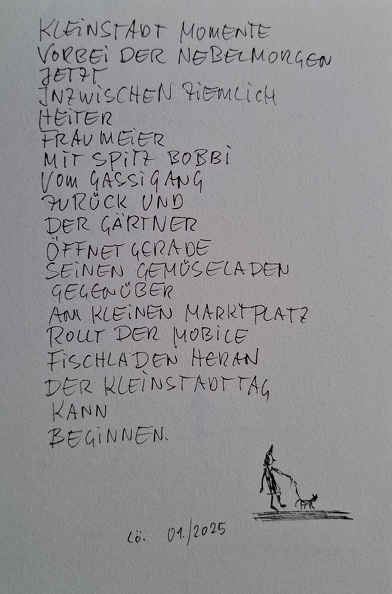 KLEINSTADT MOMENTE
VORBEI DER NEBELMORGEN
JETZT
INZWISCHEN ZIEMLICH
HEITER
FRAU MEIER
MIT SPITZ BOBBI
VOM GASSIGANG
ZURÜCK UND
DER GÄRTNER
ÖFFNET GERADE
SEINEN GEMÜSELADEN
GEGENÜBER
AM KLEINEN MARKTPLATZ
ROLLT DER MOBILE
FISCHLADEN HERAN
DER KLEINSTADTTAG
KANN
BEGINNEN.
Lö. 01./2025